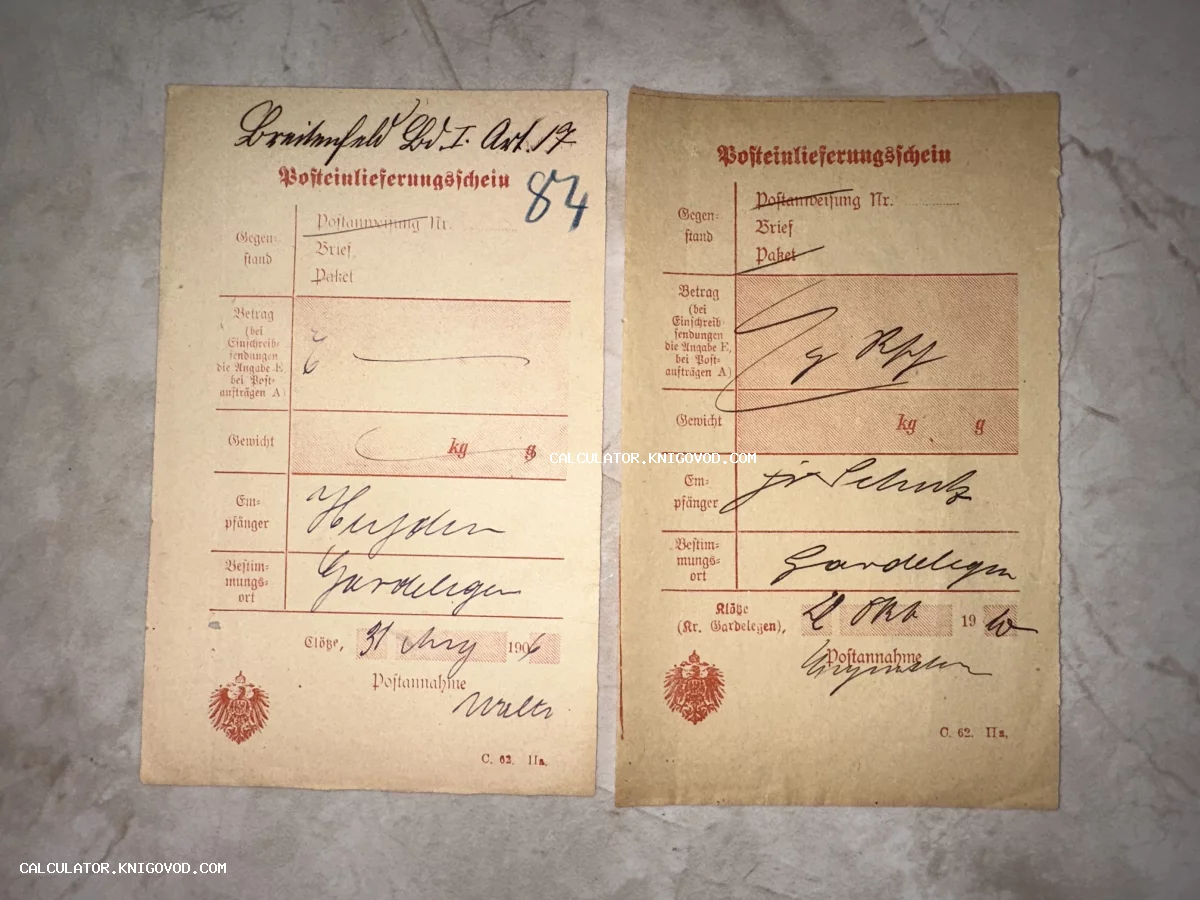 Breitenfeld Bd. I. Art. 17
Posteinlieferungsschein
84
Gegen-
stand
Postanweisung Nr.
Brief
Paket
Betrag
(bei
Einschreib-
sendungen
die Angabe E,
bei Post-
aufträgen A)
E
Gewicht
kg g
Em-
pfänger
Heyden
Bestim-
mungs-
ort
Gardelegen
Clötze, 31 Aug 1906
Postannahme
C. 62. IIa.
Posteinlieferungsschein
Gegen-
stand
Postanweisung Nr.
Brief
Paket
Betrag
(bei
Einschreib-
sendungen
die Angabe E,
bei Post-
aufträgen A)
Gewicht
kg g
Em-
pfänger
Schulz
Bestim-
mungs-
ort
Gardelegen
Klötze
(Kr. Gardelegen), Okb 19 10
Postannahme
C. 62. IIa.
CALCULATOR.KNIGOVOD.COM
CALCULATOR.KNIGOVOD.COM